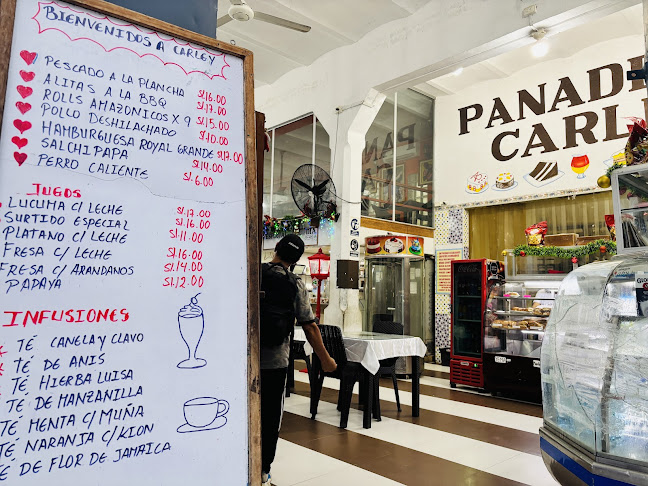 BIENVENIDOS A CARLEY
PESCADO A LA PLANCHA S/16.00
ALITAS A LA BBQ S/17.00
ROLLS AMAZONICOS X 9 S/15.00
POLLO DESHILACHADO S/10.00
HAMBURGUESA ROYAL GRANDE S/17.00
SALCHIPAPA S/14.00
PERRO CALIENTE S/6.00
JUGOS
LUCUMA C/ LECHE S/17.00
SURTIDO ESPECIAL S/16.00
PLATANO C/ LECHE S/11.00
FRESA C/ LECHE S/16.00
FRESA C/ ARANDANOS S/14.00
PAPAYA S/12.00
INFUSIONES
TÉ CANELA Y CLAVO
TÉ DE ANIS
TÉ HIERBA LUISA
TÉ DE MANZANILLA
TÉ MENTA C/ MUÑA
TÉ NARANJA C/KION
TÉ DE FLOR DE JAMAICA
PANADE
CARL
PAN
CA